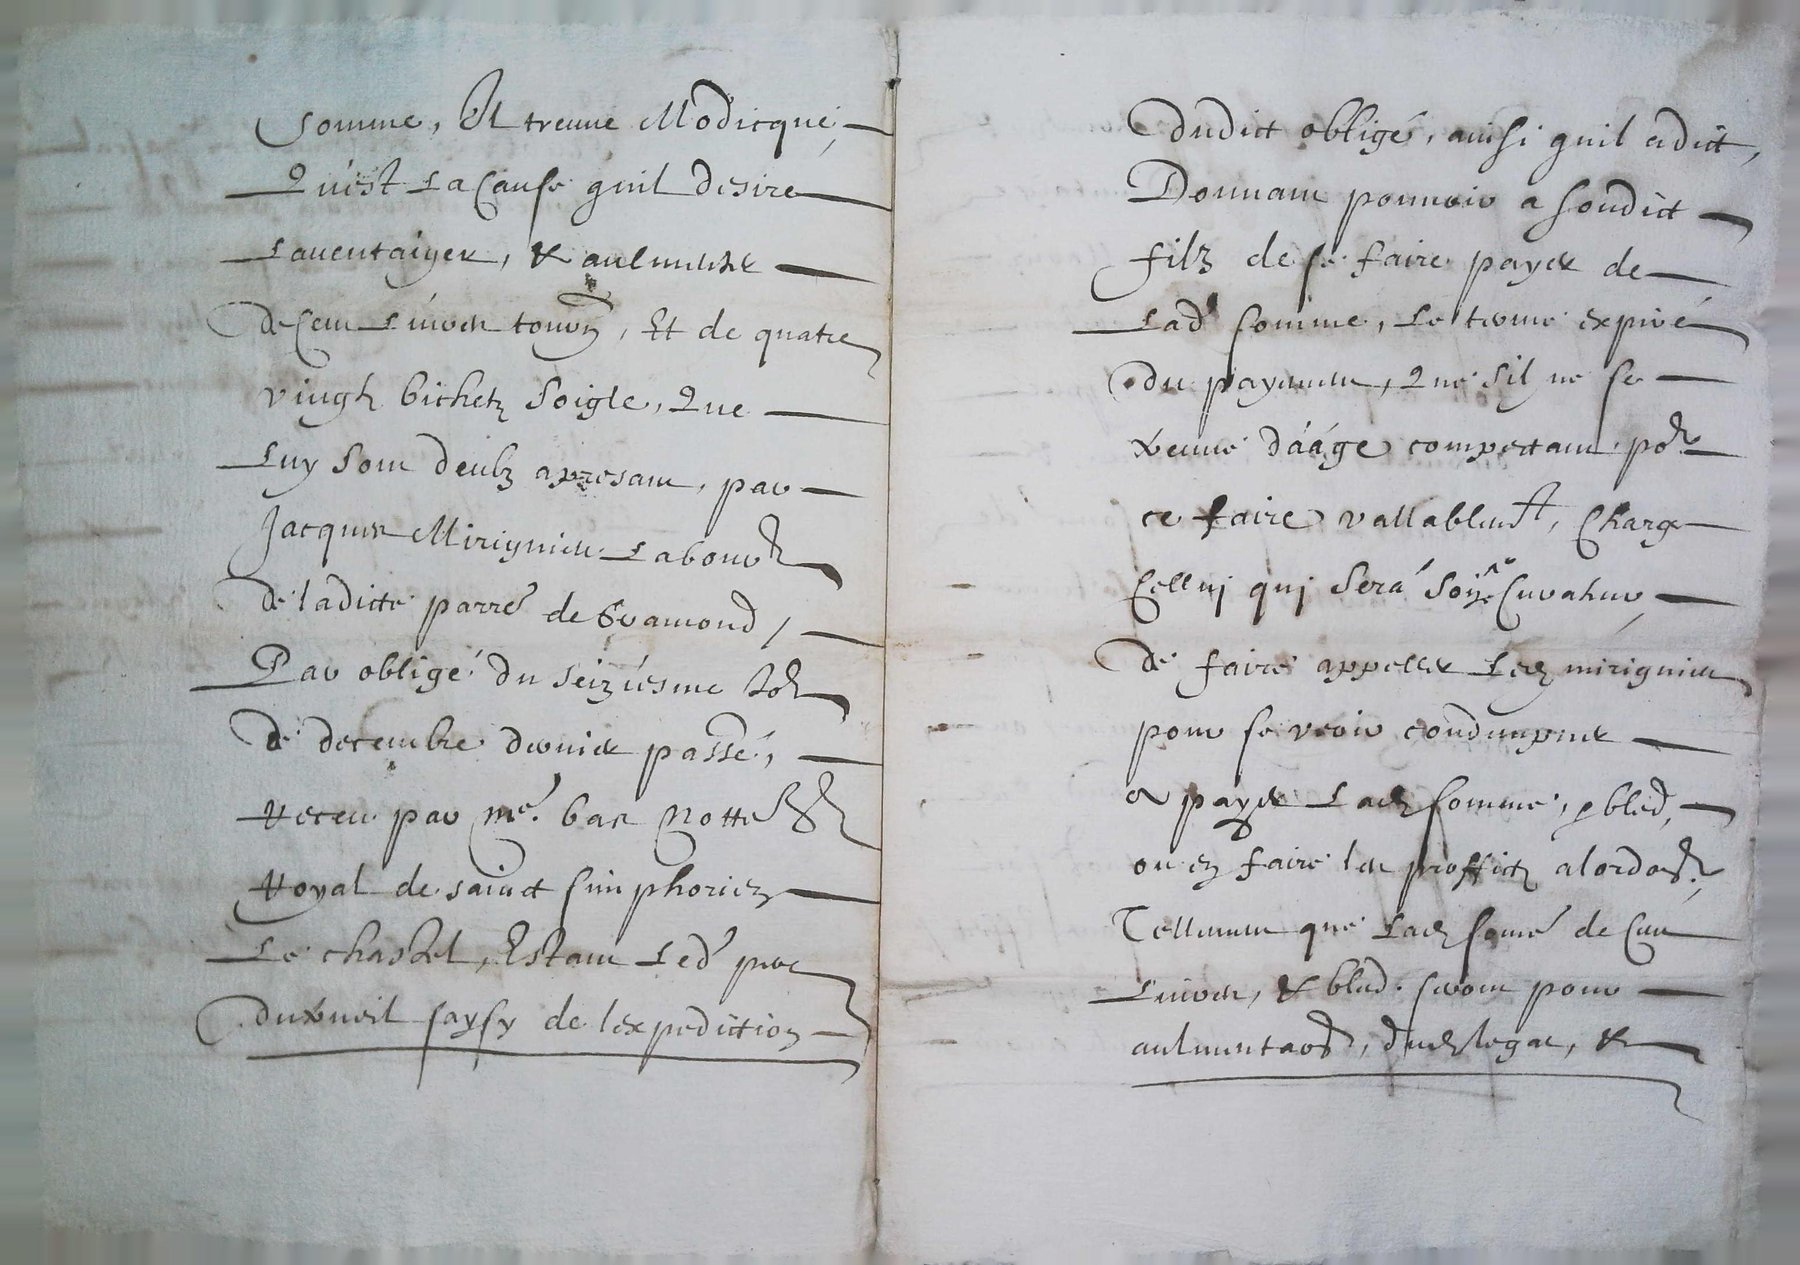 somme, Il treuve Modicque,
Quist La Cause quil desire
Laventaiger, & aulmenter
De Cent Livres tourn, Et de quatre
vingts bichetz Soigle, Que
Luy Sont deubz apresant, par
Jacques Mirignieu Labour
De ladicte parre de Gramond /
Par obligé du Seiziesme Jor
De decembre dernier passé,
Receu par Me. bar Notte
Royal de sainct Simphorien
Le chastel, Estant Led
duxueil saysy de lexpedittion
Dudict obligé, ainsi quil a dict,
Donnant pouvoir a Sondict
filz de se faire payer de
Lad somme, Le terme expiré
du payement, Que Sil ne se
treuve d'aáge compettant por
ce faire vallablemt, Charge
Celluj quj Serà Curateur,
De faire appeller Led mirignieu
pour se veoir condempner
a payer Lad somme, & bled,
ou en faire les proffictz a lord
Tellement que Lad some de Cent
Livres, & bled seront pour
dud legat, &